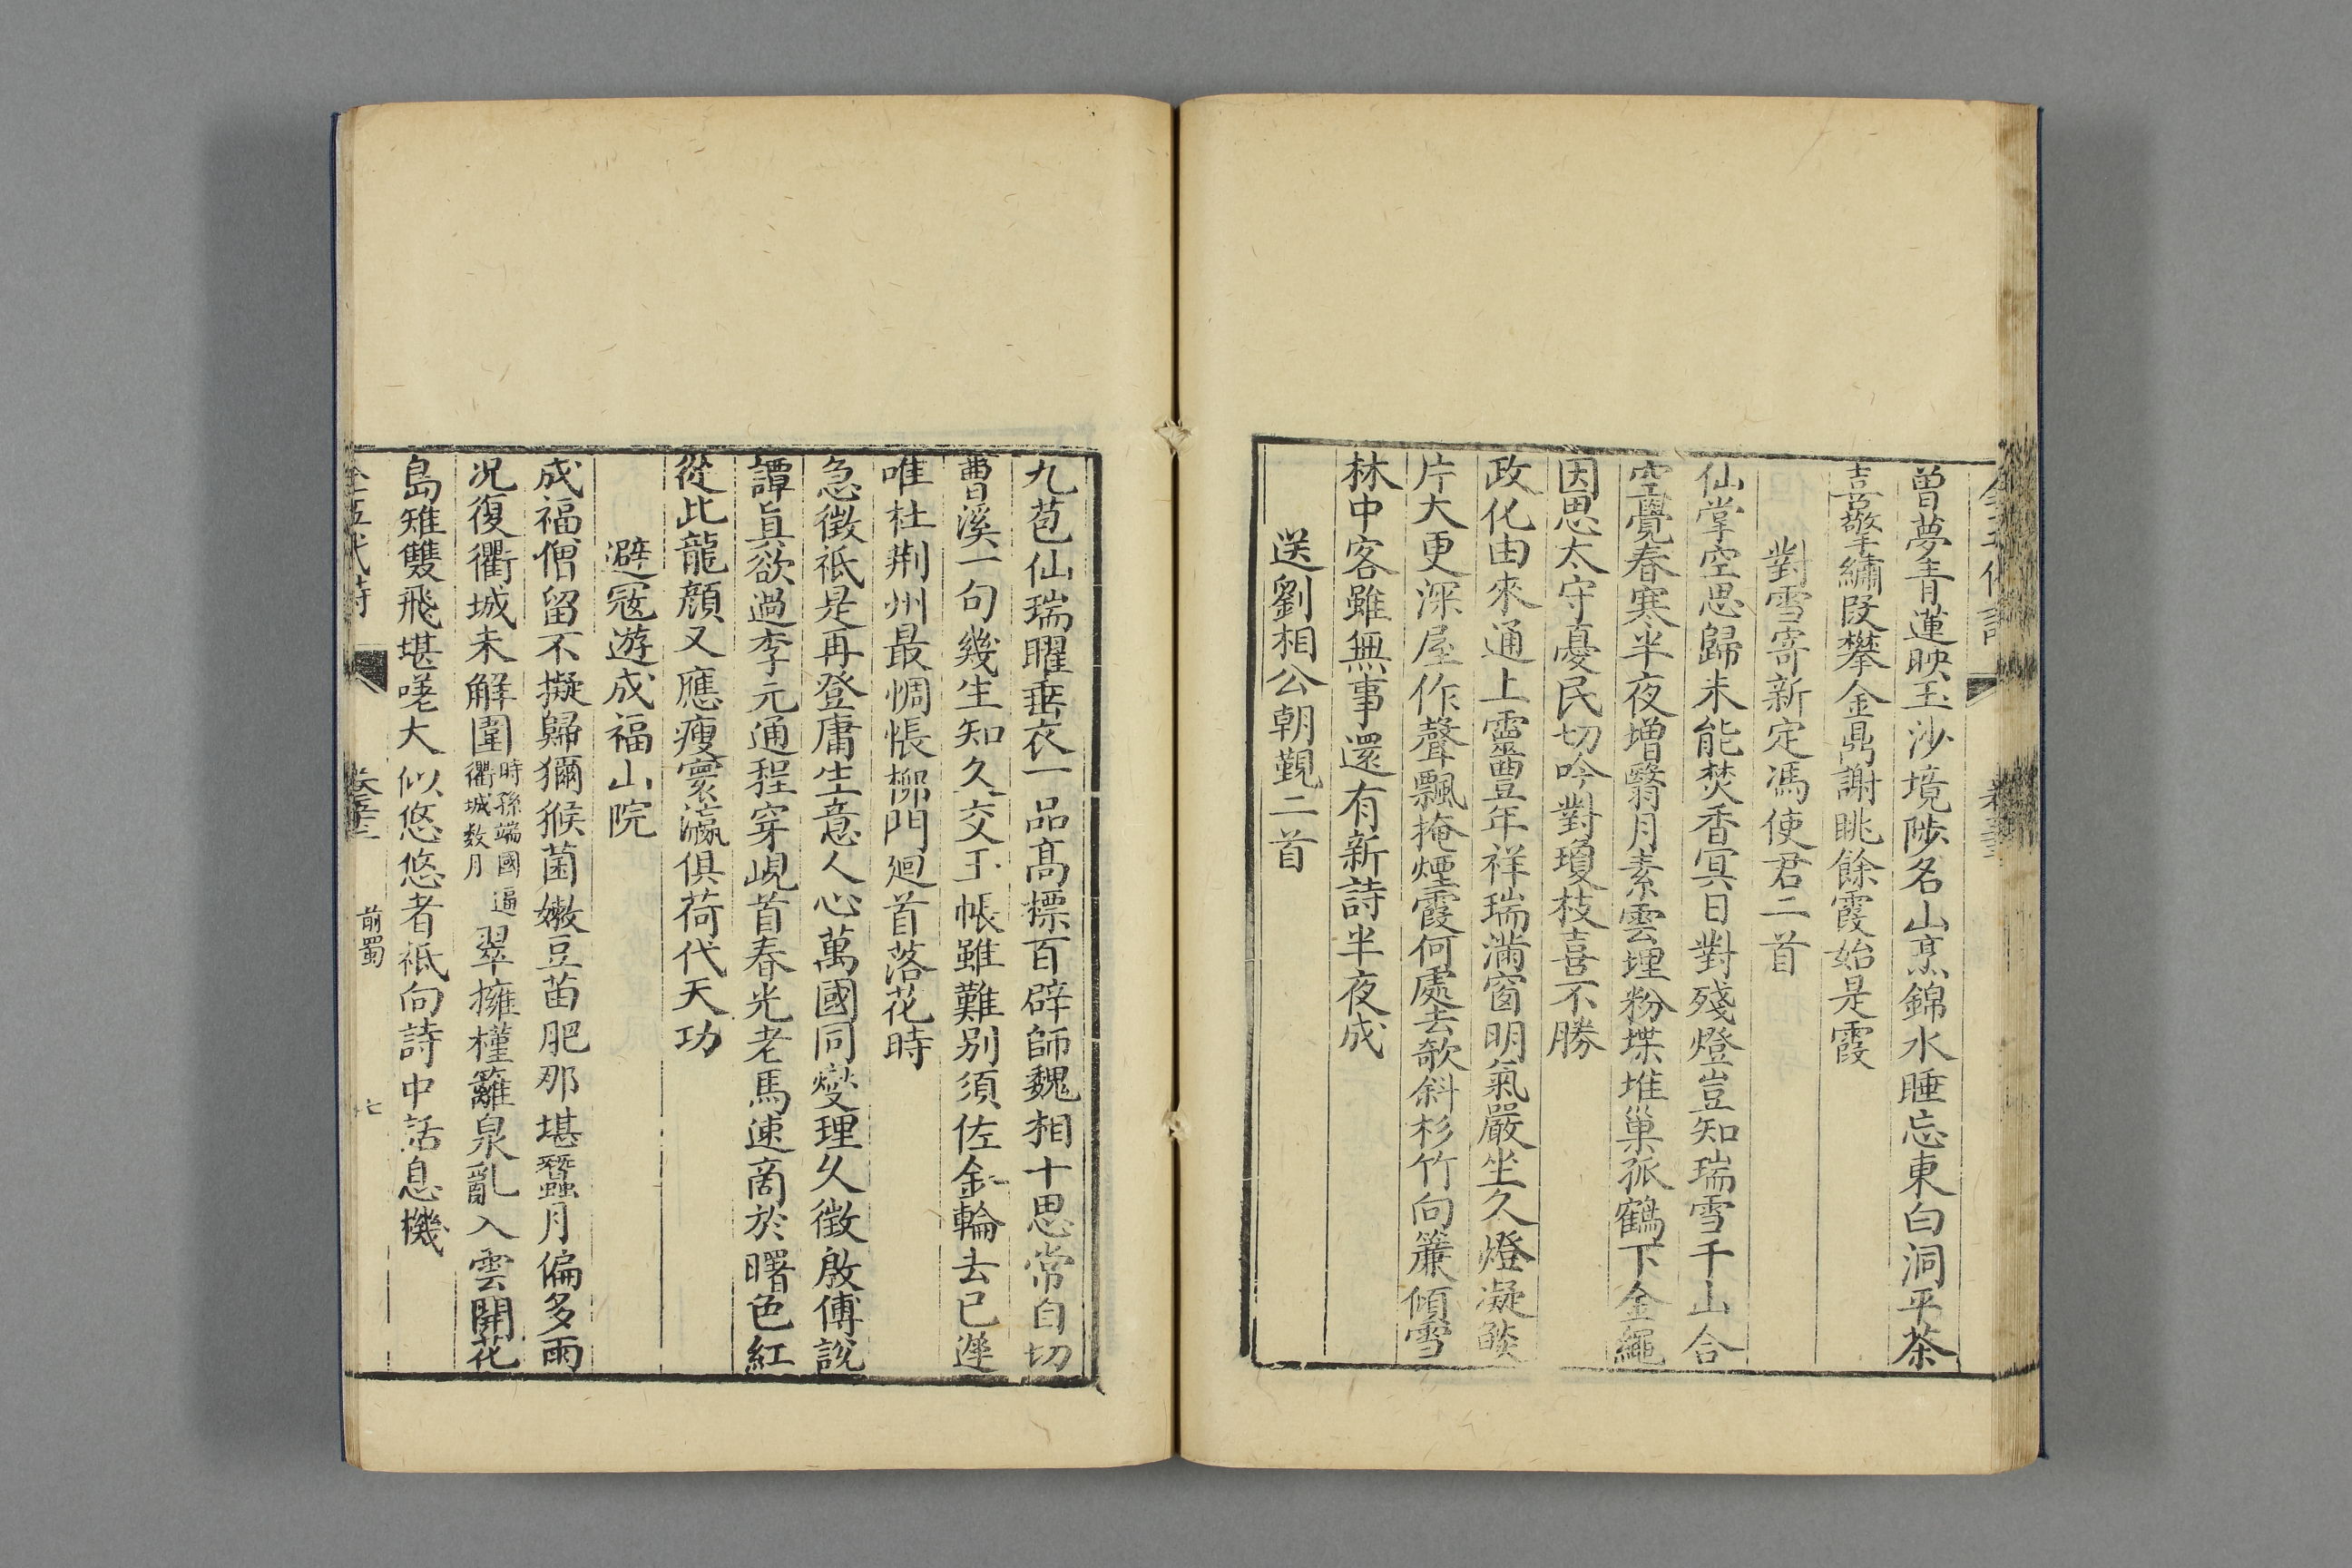 曾夢青蓮映玉沙境陟名山烹錦水睡忘東白洞平茶
喜擎繡段攀金鼎謝眺餘霞始是霞
對雪寄新定馮使君二首
仙掌空思歸未能焚香冥日對殘燈豈知瑞雪千山合
空覺春寒半夜增翳月素雲埋粉堞堆巢孤鶴下金繩
因思太守憂民切吟對瓊枝喜不勝
政化由來通上靈豐年祥瑞滿窗明氣嚴坐久燈凝燄
片大更深屋作聲飄掩煙霞何處去欹斜杉竹向簾傾雪
林中客雖無事還有新詩半夜成
送劉相公朝覲二首
九苞仙瑞曜垂衣一品高標百辟師魏相十思常自切
曹溪一句幾生知久交玉帳雖難別須佐金輪去已遲
唯杜荆州最惆悵柳門廻首落花時
急徵祗是再登庸生意人心萬國同燮理久徵殷傅說
譚真欲過李元通程穿峴首春光老馬速商於曙色紅
從此龍顔又應瘦寰瀛俱荷代天功
避寇遊成福山院
成福僧留不擬歸獮猴菌嫩豆苗肥那堪蠶月偏多雨
况復衢城未解圍時孫端國遍衢城数月翠擁槿籬泉亂入雲開花
島雉雙飛堪嗟大似悠悠者祗向詩中話息機
全五代詩 前蜀 七